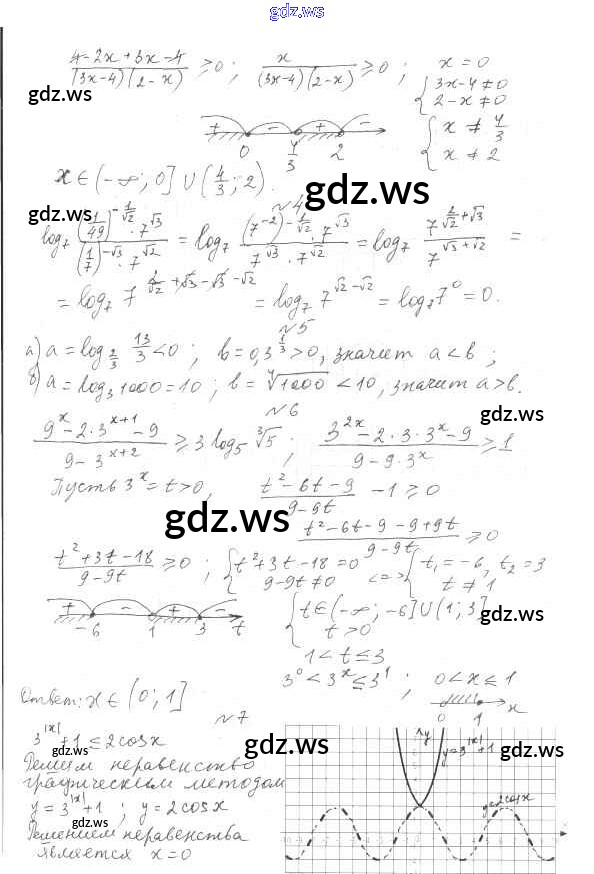 gdz.ws
(4-2x+3x-4)/((3x-4)(2-x)) ≥ 0 ; x/((3x-4)(2-x)) ≥ 0 ; { x=0
3x-4≠0
2-x≠0
gdz.ws
gdz.ws
- + -
0 4/3 2
{ x≠4/3
x≠2
x ∈ (-∞; 0] ∪ (4/3; 2).
gdz.ws
№4
gdz.ws
log₇ ((1/49)^(-1/√2) · 7^√3)/((1/7)^(-√3) · 7^√2) = log₇ ((7^-2)^(-1/√2) · 7^√3)/(7^√3 · 7^√2) = log₇ 7^(2/√2+√3)/7^(√3+√2) =
= log₇ 7^(2/√2+√3-√3-√2) = log₇ 7^(√2-√2) = log₇ 7^0 = 0.
№5
а) a = log_(2/3) 13/3 < 0 ; b = 0,3^(1/3) > 0, значит a < b ;
gdz.ws
б) a = log₃ 1000 = 10 ; b = √1000 < 10, значит a > b.
№6
gdz.ws
(9^x - 2·3^(x+1) - 9)/(9 - 3^(x+2)) ≥ 3 log₅ ∛5 ; (3^(2x) - 2·3·3^x - 9)/(9 - 9·3^x) ≥ 1
Пусть 3^x = t > 0, (t²-6t-9)/(9-9t) - 1 ≥ 0
gdz.ws
(t²-6t-9-9+9t)/(9-9t) ≥ 0
gdz.ws
(t²+3t-18)/(9-9t) ≥ 0 ; { t²+3t-18=0
9-9t≠0 <=> { t₁=-6, t₂=3
t≠1
+ - + -
-6 1 3 t
{ t∈(-∞; -6]∪(1; 3]
t>0
gdz.ws
gdz.ws
1 < t ≤ 3
3^0 < 3^x ≤ 3^1 ; 0 < x ≤ 1
Ответ: x ∈ (0; 1]
0 1 x
№7
3^|x| + 1 ≤ 2cosx
gdz.ws
gdz.ws
gdz.ws
y
y=3^|x|+1
Решим неравенство
графическим методом
y = 3^|x| + 1 ; y = 2cosx
y=2cosx
gdz.ws
Решением неравенства
является x=0
gdz.ws